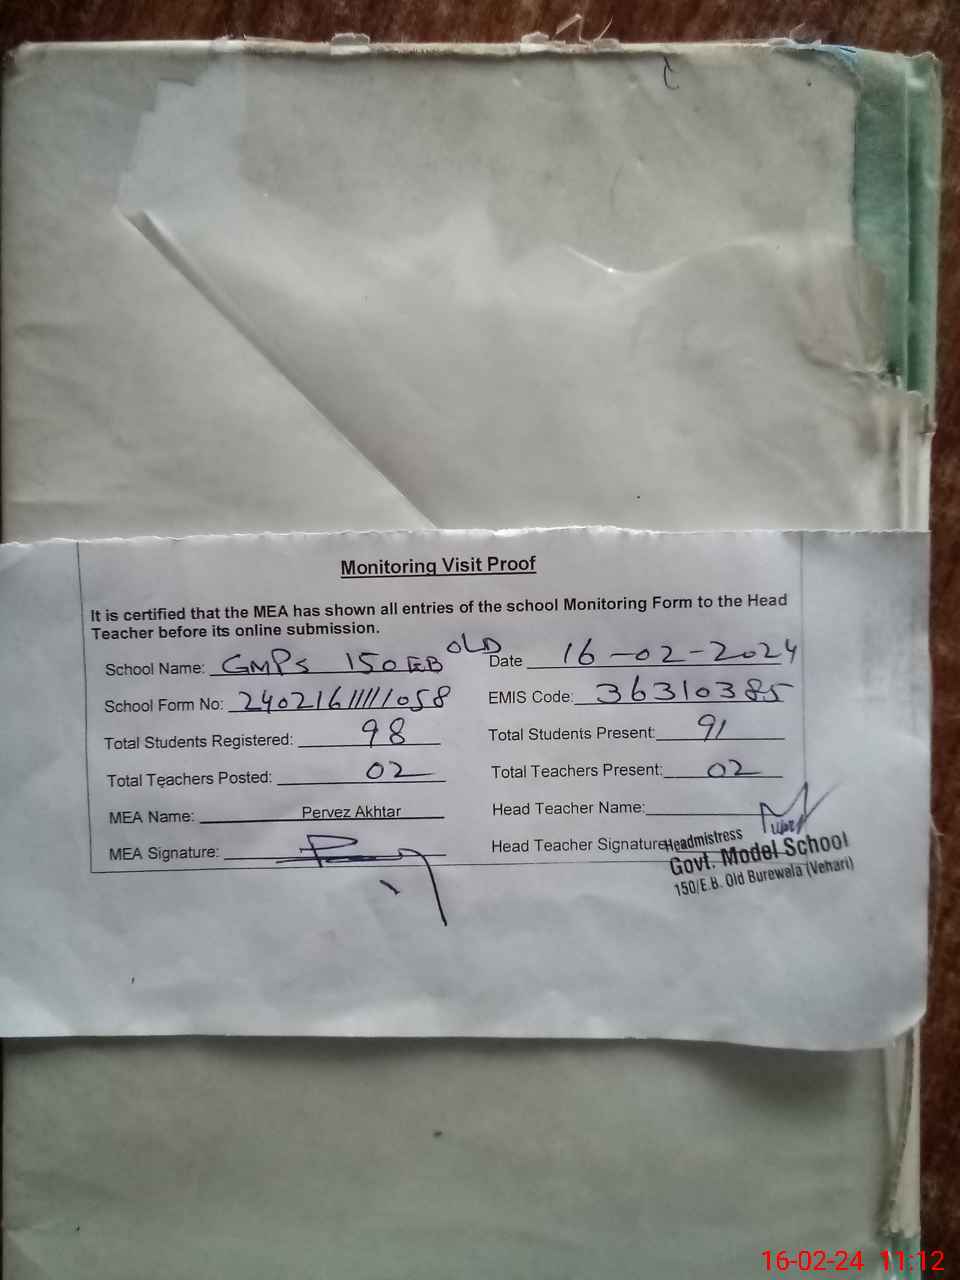 Monitoring Visit Proof
It is certified that the MEA has shown all entries of the school Monitoring Form to the Head
Teacher before its online submission.
School Name: GMPS 150 EB OLD Date 16-02-2024
School Form No: 24021611111058 EMIS Code: 36310385
Total Students Registered: 98 Total Students Present: 91
Total Teachers Posted: 02 Total Teachers Present: 02
MEA Name: Pervez Akhtar Head Teacher Name:
MEA Signature: Head Teacher Signature
Headmistress
Govt. Model School
150/E.B. Old Burewala (Vehari)
16-02-24 11:12